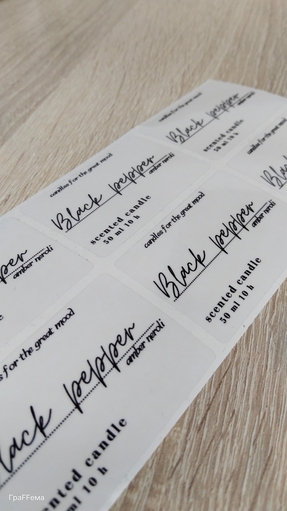 candles for the great mood
Black pepper
amber neroli
scented candle
50 ml 10 h
candles for the great mood
Black pepper
amber neroli
scented candle
50 ml 10 h
candles for the great mood
Black pepper
amber neroli
scented candle
50 ml 10 h
per
amber neroli
s for the great mood
lack pepper
amber neroli
nted candle
ml 10 h
candles for the great mood
Black
ГраFFема